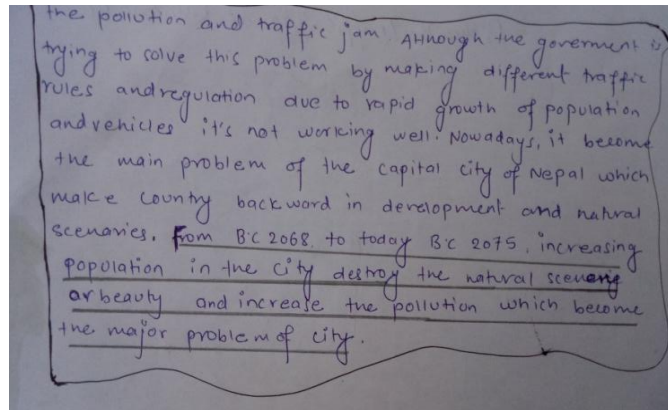 the pollution and traffic jam Although the goverment is
trying to solve this problem by making different traffic
rules and regulation due to rapid growth of population
and vehicles it's not working well. Nowadays, it become
the main problem of the capital city of Nepal which
make country backword in development and natural
scenaries. From B.C 2068 to today B.C 2075, increasing
population in the city destroy the natural scenerie
or beauty and increase the pollution which become
the major problem of city.